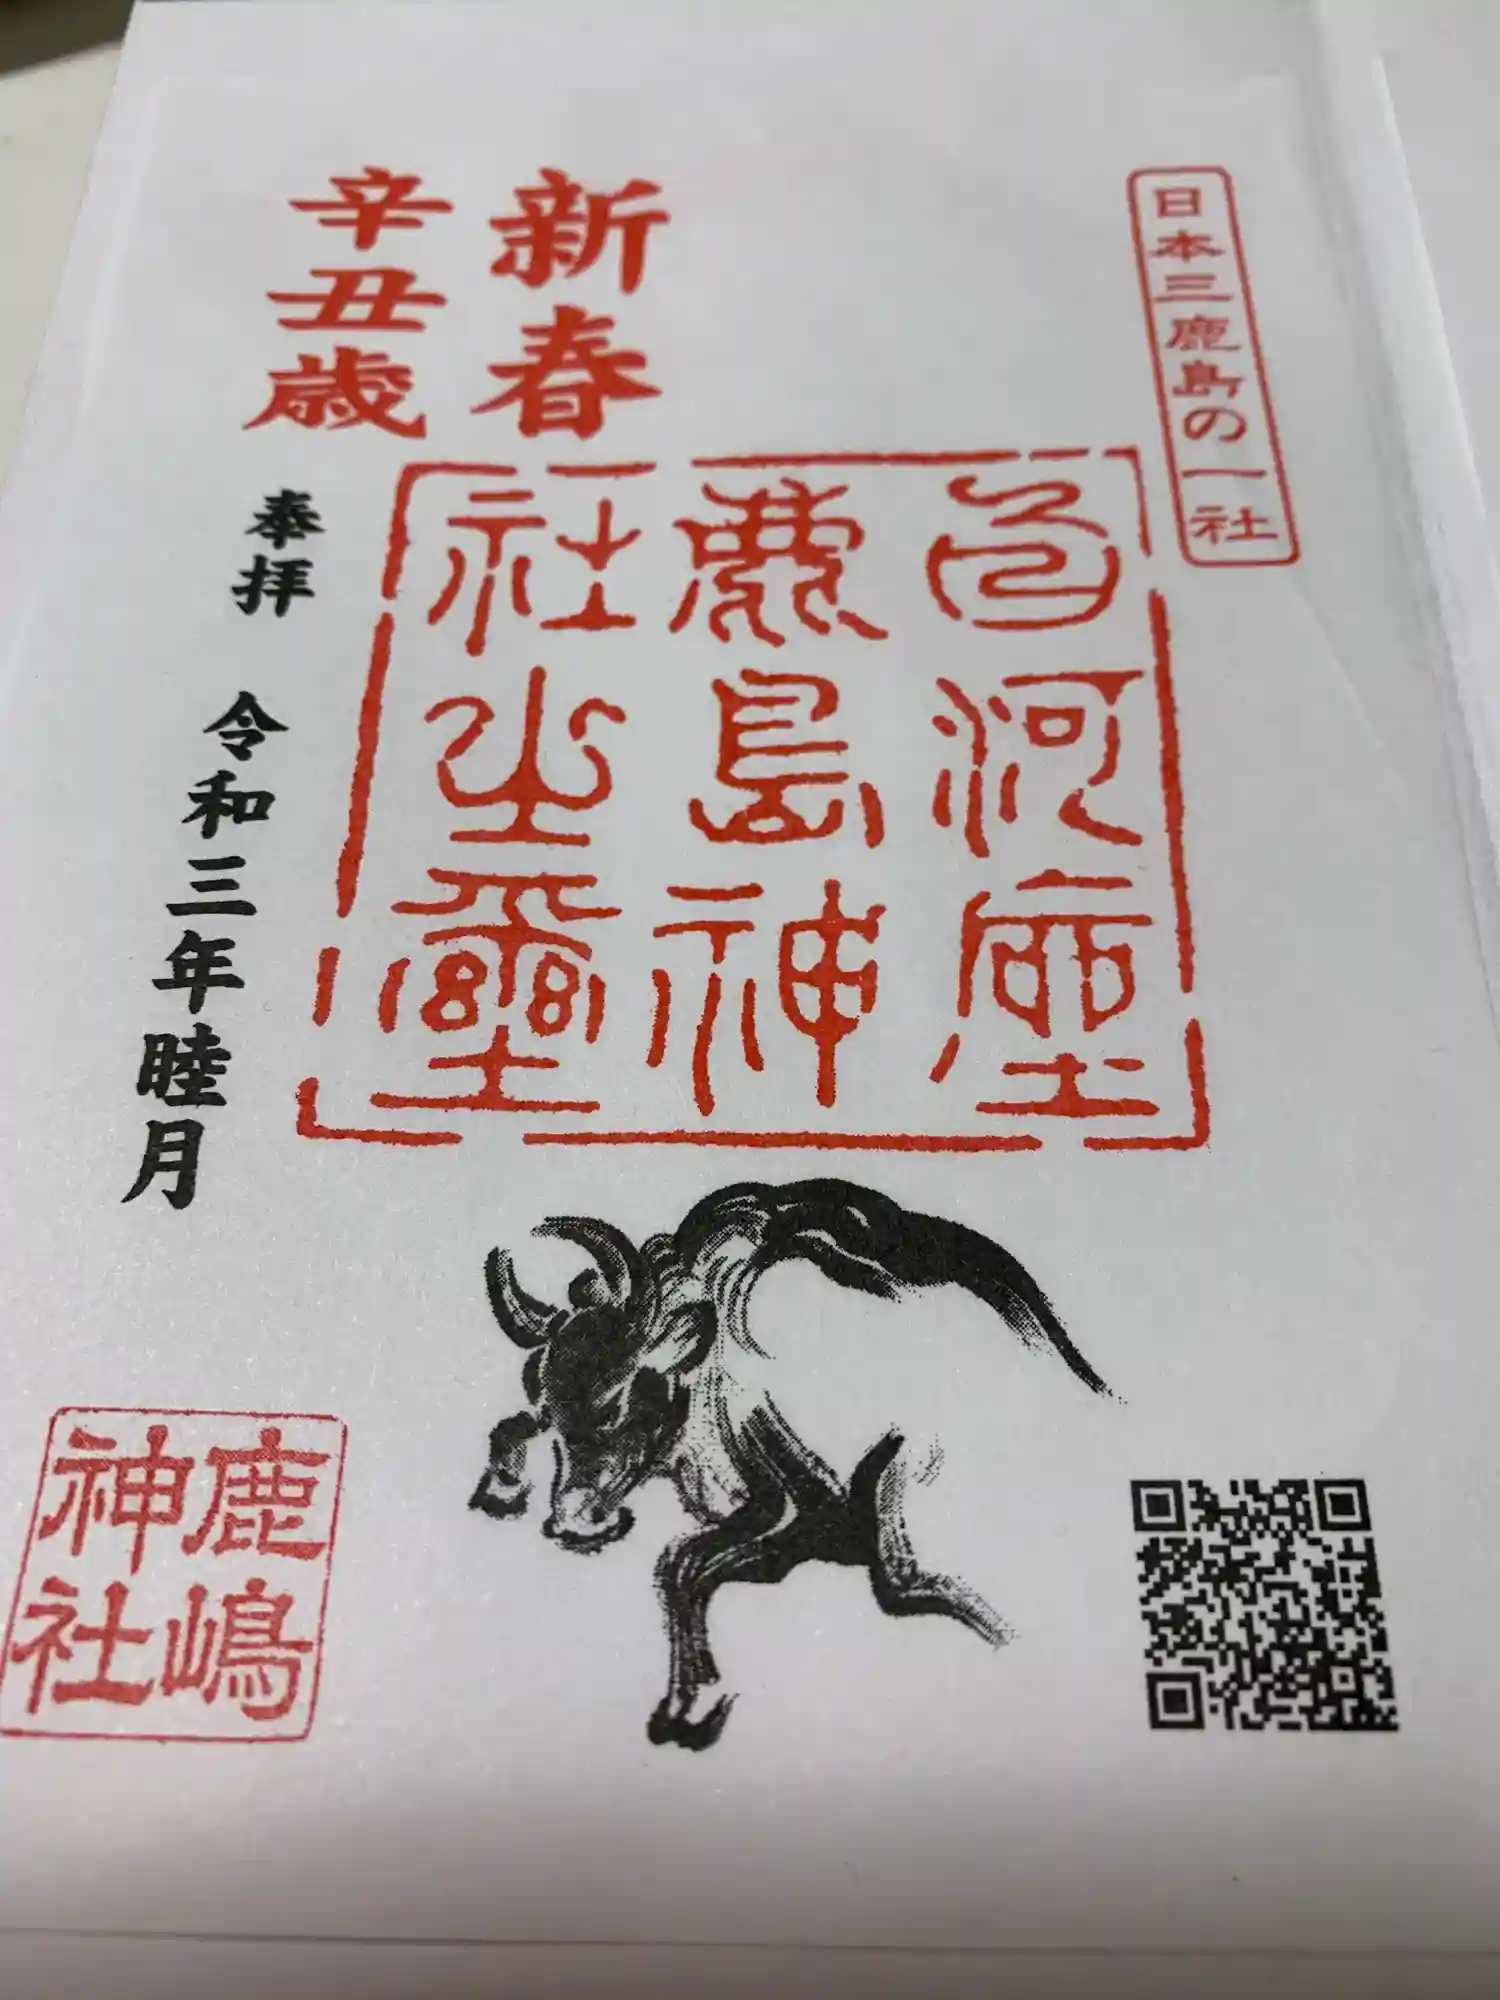 日本三鹿島の一社
新春
辛丑歳
色河座
鹿島神
社之璽
奉拝 令和三年睦月
鹿嶋
神社